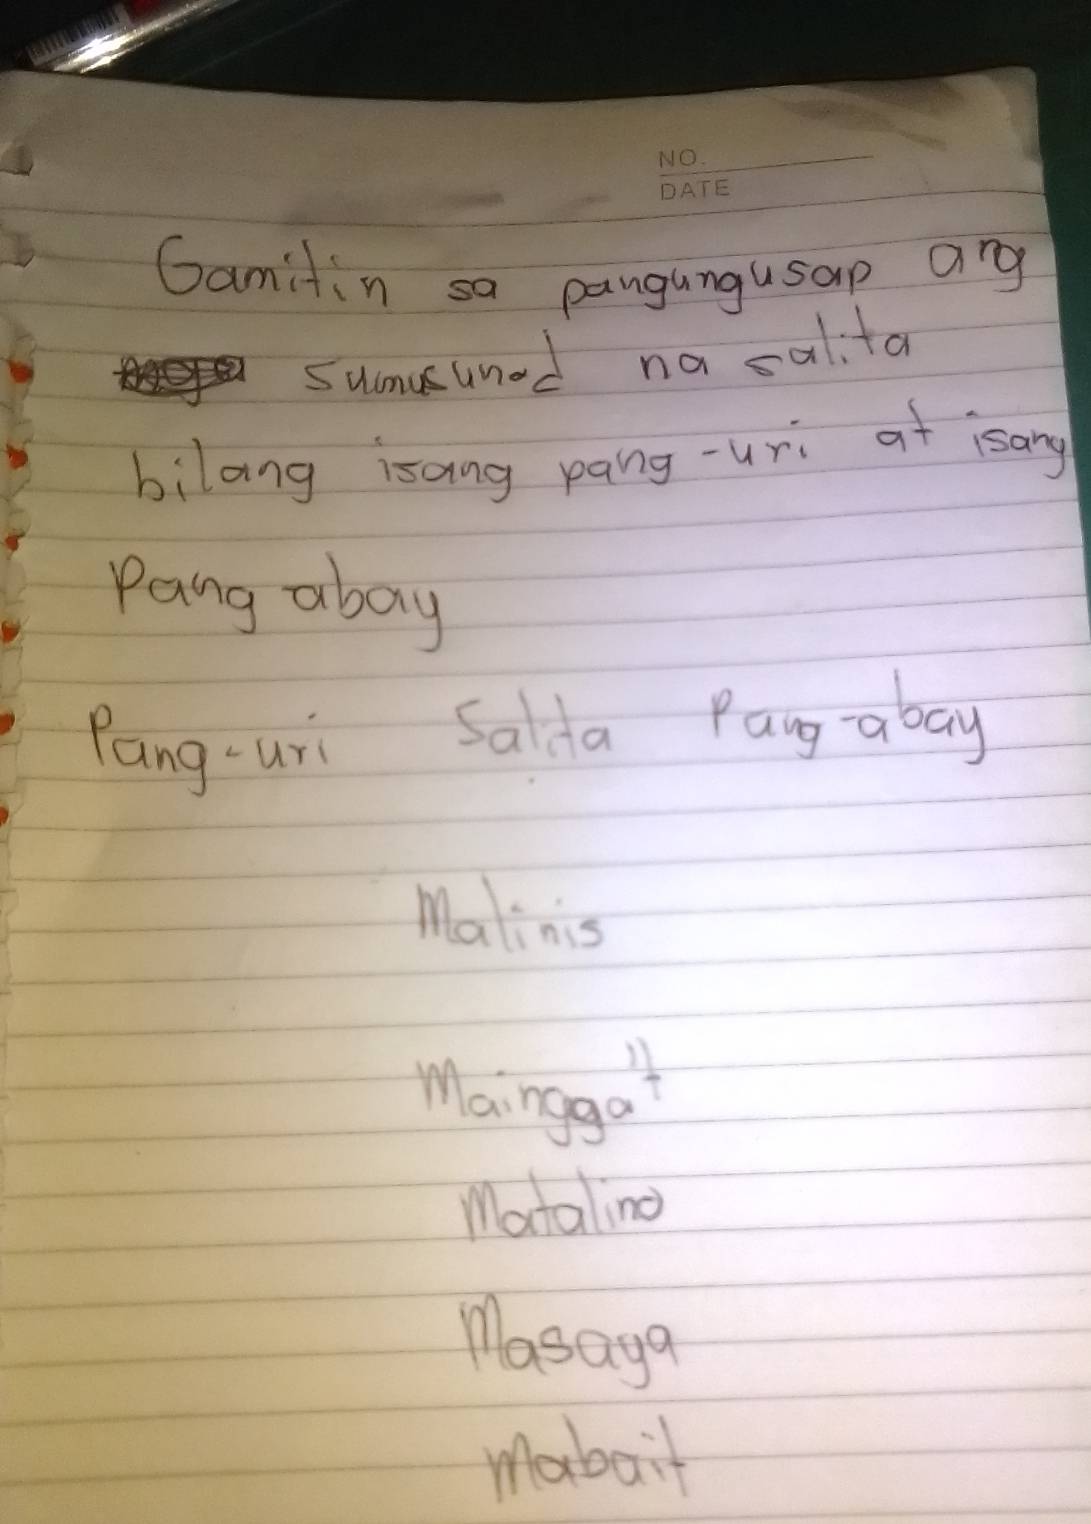 NO.
DATE
Gamitin sa pangungusap ang
sumusunod na salita
bilang isang pang-uri at isang
Pang abay
Pang-uri Salita Pang-abay
Malinis
Mainggat
Matalino
Masaya
Mabait